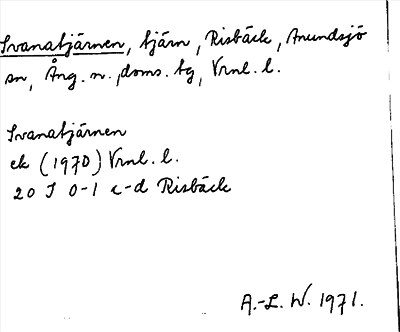 Svanatjärnen, tjärn, Risbäck, Anundsjö
sn, Ång. n. doms. tg, Vrnl. l.
Svanatjärnen
ek (1970) Vrnl. l.
20 J 0-1 c-d Risbäck
A.-L. W. 1971.